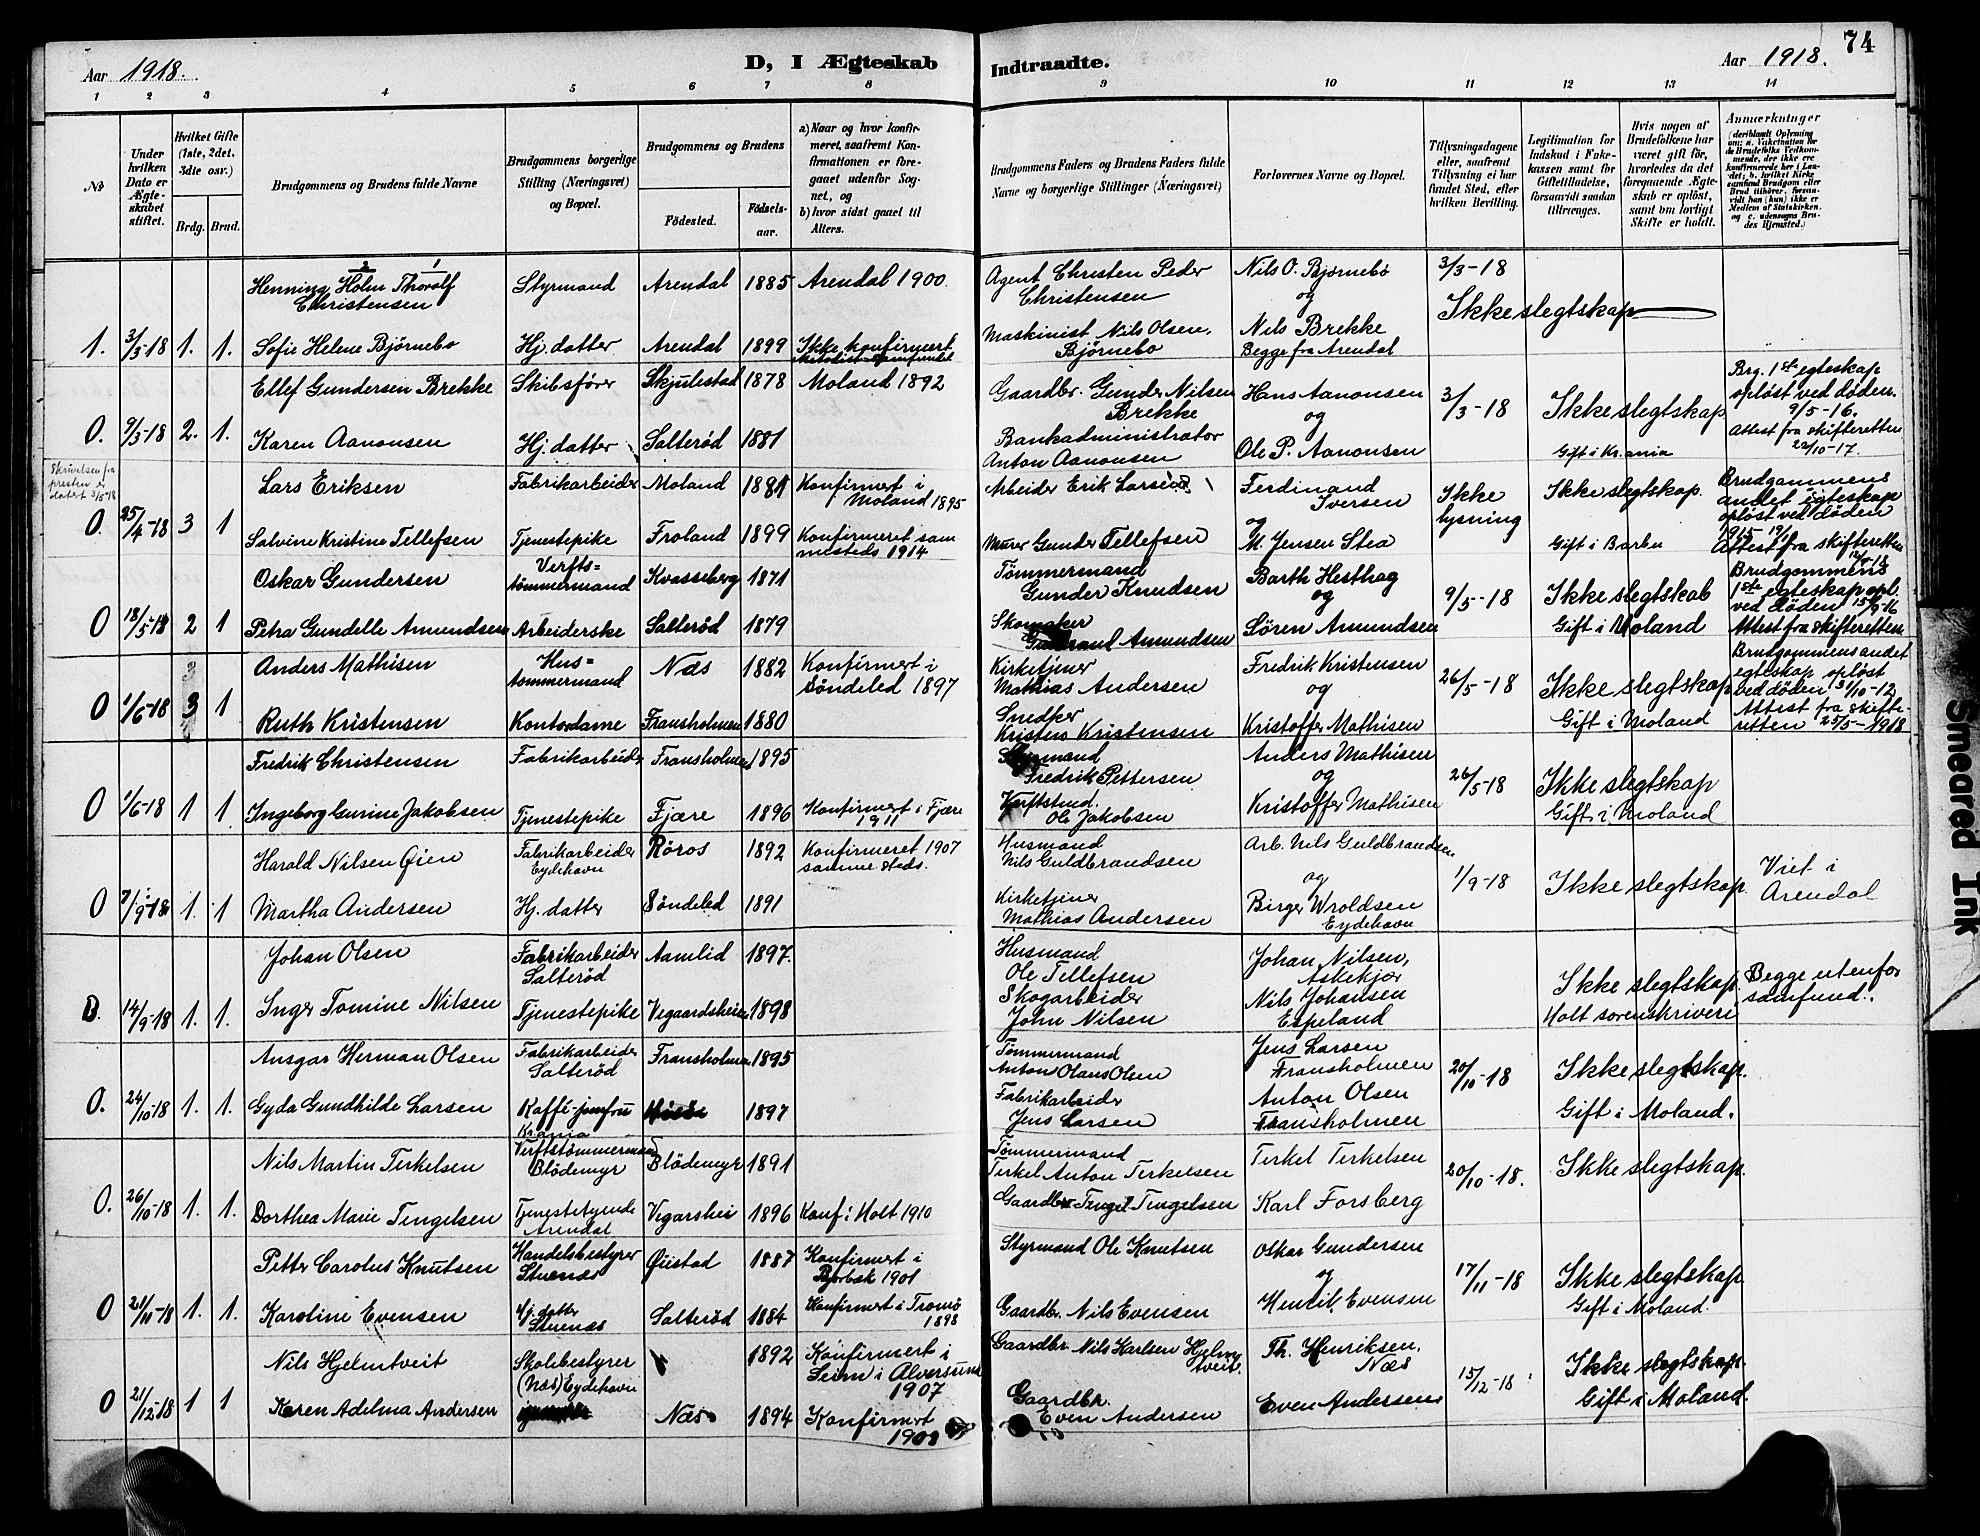 74
Aar 1918.
D, I Ægteskab Indtraadte.
Aar 1918.
1 2 3 4 5 6 7 8 9 10 11 12 13 14
No
Under hvilken Dato er Ægte-skabet stiftet.
Hvilket Gifte (1ste, 2det, 3die osv.)
Brdg. Brud.
Brudgommens og Brudens fulde Navne
Brudgommens borgerlige Stilling (Næringsvei) og Bopæl.
Brudgommens og Brudens
Födested.
Födsels-aar.
a) Naar og hvor konfir-meret, saafremt Kon-firmationen er fore-gaaet udenfor Sog-net, og
b) hvor sidst gaaet til Alters.
Brudgommens Faders og Brudens Faders fulde Navne og borgerlige Stillinger (Næringsvei)
Forlovernes Navne og Bopæl.
Tillysningsdagene eller, saafremt Tillysning ei har fundet Sted, efter hvilken Bevilling.
Legitimation for Indskud i Enke-kassen samt for Giftetilladelse, forsaavidt saadan tiltrænges.
Hvis nogen af Brudefolkene har været gift før, hvorledes da det foregaaende Ægte-skab er opløst, samt om lovligt Skifte er holdt.
Anmærkninger
(deriblandt Oplysning om: a. Vakcination for de Brudefolks Vedkom-mende, der ikke ere konfirmerede her i Lan-det; b. hvilket Kirke-samfund Brudgom eller Brud tilhører, forsaa-vidt han (hun) ikke er Medlem af Statskirken. og c. udensogns Bru-des Hjemsted.)
2 1
Henning Holm Thoralf Christensen Styrmand Arendal 1885 Arendal 1900. Agent Christen Peder Christensen Nils O. Bjørnebø og 3/3-18 Ikke slegtskap
1. 3/3-18 1. 1. Sofie Helene Bjørnebo Hj. datter Arendal 1899 Ikke konfirmert Maskinist Nils Olsen Bjørnebo Nils Brekke Begge fra Arendal
Ellef Gundersen Brekke Skibsfører Skjulestad 1878 Moland 1892 Gaardbr. Gunder Nilsen Brekke Hans Aanonsen og 3/3-18 Ikke slegtskap Brg. 1ste egteskap opløst ved døden 9/5-16.
0. 9/3-18 2. 1. Karen Aanonsen Hj. datter Salterød 1881 Bankadministrator Anton Aanonsen Ole P. Aanonsen Gift i Kr.ania Attest fra skifteretten 22/10-17.
Skrivelsen fra presten er datert 3/5-18
Lars Eriksen Fabrikarbeider Moland 1881 Konfirmert i Moland 1895 Arbeider Erik Larsen Ferdinand Iversen og Ikke lysning Ikke slegtskap. Brudgommens andet egteskap opløst ved døden
0. 25/4-18 3 1 Salvine Kristine Tellefsen Tjenestepike Froland 1899 Konfirmeret sam mesteds 1914 Murer Gunder Tellefsen M. Jensen Stea Gift i Barbu Attest fra skifteretten
Oskar Gundersen Verfts=tømmermand Kvasseberg 1871 Tømmermand Gunder Knudsen Barth Hesthag og 9/5-18 Ikke slegtskab Brudgommens 1ste egteskap opl. ved døden
0 18/5-18 2 1 Petra Gundelle Amundsen Arbeiderske Salterød 1879 Skomaker Amundsen Søren Amundsen Gift i Moland Attest fra skifteretten
Anders Mathisen Hus=tømmermand Næs 1882 Konfirmert i Søndeled 1897 Kirketjener Mathias Andersen Fredrik Kristensen og 26/5-18 Ikke slegtskap Brudgommens andet egteskap opløst ved døden 31/10-12
0 1/6-18 3 1 Ruth Kristensen Kontordame Fransholmen 1880 Snedker Kristen Kristensen Kristoffer Mathisen Gift i Moland Attest fra skifte-retten 25/5-1918
Fredrik Christensen Fabrikarbeider Fransholmen 1895 Styrmand Fredrik Pettersen Anders Mathisen og 26/5-18 Ikke slegtskap
0 1/6-18 1 1 Ingeborg Gurine Jakobsen Tjenestepike Fjære 1896 Konfirmert i Fjære 1911 Ole Jakobsen Kristoffer Mathisen Gift i Moland
Harald Nilsen Øien Fabrikarbeider Eydehavn Røros 1892 Konfirmeret 1907 samme steds. Husmand Nils Guldbrandsen Arb. Nils Guldbrandsen og 1/9-18 Ikke slegtskap Viet i Arendal
0 7/9-18 1. 1 Martha Andersen Hj. datter Søndeled 1891 Kirketjener Mathias Andersen Birger Wroldsen Eydehavn
Johan Olsen Fabrikarbeider Salterød Aamlid 1897. Husmand Ole Tellefsen Johan Nilsen, Askekjær Ikke slegtskap. Begge utenfor samfund.
B. 14/9-18 1. 1. Inger Tomine Nilsen Tjenestepike Vegaardsheien 1898 Skogarbeider John Nilsen Nils Johansen Espeland Holt sorenskriveri
Ansgar Herman Olsen Fabrikarbeider Salterød Fransholmen 1895 Tømmermand Anton Olaus Olsen Jens Larsen Fransholmen 20/10-18 Ikke slegtskap.
0. 24/10-18 1. 1. Gyda Gundhilde Larsen Kaffi-jomfru Krania 1897 Fabrikarbeider Jens Larsen Anton Olsen Fransholmen Gift i Moland.
Nils Martin Terkelsen Verftstømmermand Blødemyr Blødemyr 1891 Tømmermand Terkel Anton Terkelsen Terkel Terkelsen 20/10-18. Ikke slegtskap.
0. 26/10-18 1. 1. Dorthea Marie Tengelsen Tjenestetyende Arendal Vigarshei 1896 Konf i Holt 1910 Gaardbr. Tengel Tengelsen Karl Forsberg
Petter Carolus Knutsen Handelsbestyrer Stuenæs Øiestad 1887 Konfirmert i 1901 Styrmand Ole Knutsen Oskar Gundersen og 17/11-18 Ikke slegtskap
0 21/11-18 1. 1. Karoline Evensen Hj. datter Stuenæs Salterød 1884 Konfirmert i Tromø 1898 Gaardbr. Nils Evensen Henrik Evensen Gift i Moland.
Nils Hjelmtveit Skolebestyrer (Næs) Eydehavn 1892 Konfirmert i Seim i Alversund 1907 Gaardbr. Nils Karlsen Hjelmtveit Th. Henriksen, Næs 15/12-18 Ikke slegtskap.
0 21/12-18 1 1 Karen Adelma Andersen Næs 1894 Konfirmert 1908 Gaardbr. Even Andersen Even Andersen Gift i Moland.
Smeared Ink